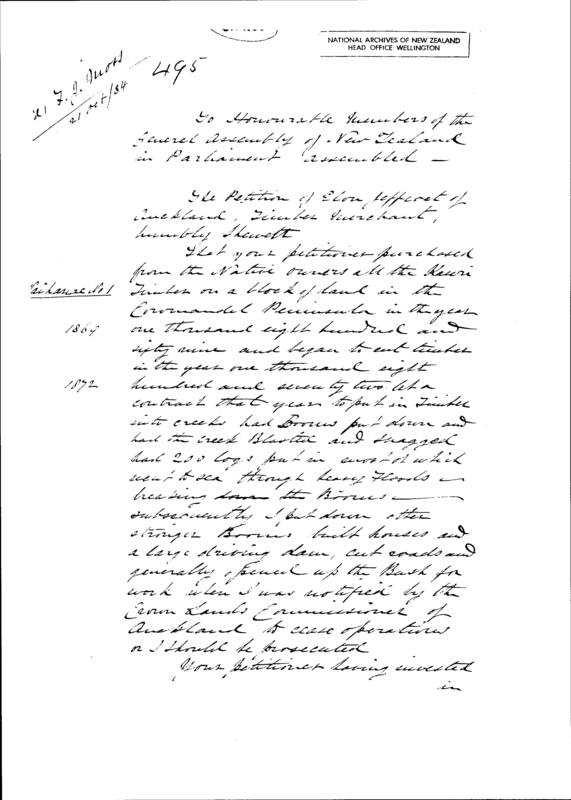 NATIONAL ARCHIVES OF NEW ZEALAND
HEAD OFFICE WELLINGTON
F. J. Moss
21 oct/84
495
To Honourable Members of the
General Assembly of New Zealand
in Parliament assembled —
The Petition of Elon of
Auckland, Timber Merchant,
humbly Sheweth
That your petitioner purchased
from the Native owners all the Kauri
No 1
Timber on a block of land in the
Coromandel Peninsula in the year
1869
one thousand eight hundred and
sixty nine and began to cut timber
in the year one thousand eight
1872
hundred and seventy two let a
contract that year to put in Timber
into creeks had Booms put down and
had the creek Blasted and snagged
had 200 logs put in most of which
went to sea through heavy Floods
breaking down the Booms —
subsequently I put down other
stronger Booms built houses and
a large driving dam, cut roads and
generally opened up the Bush for
work when I was notified by the
Crown Lands Commissioner of
Auckland to cease operations
or I should be prosecuted
Your petitioner having invested
in